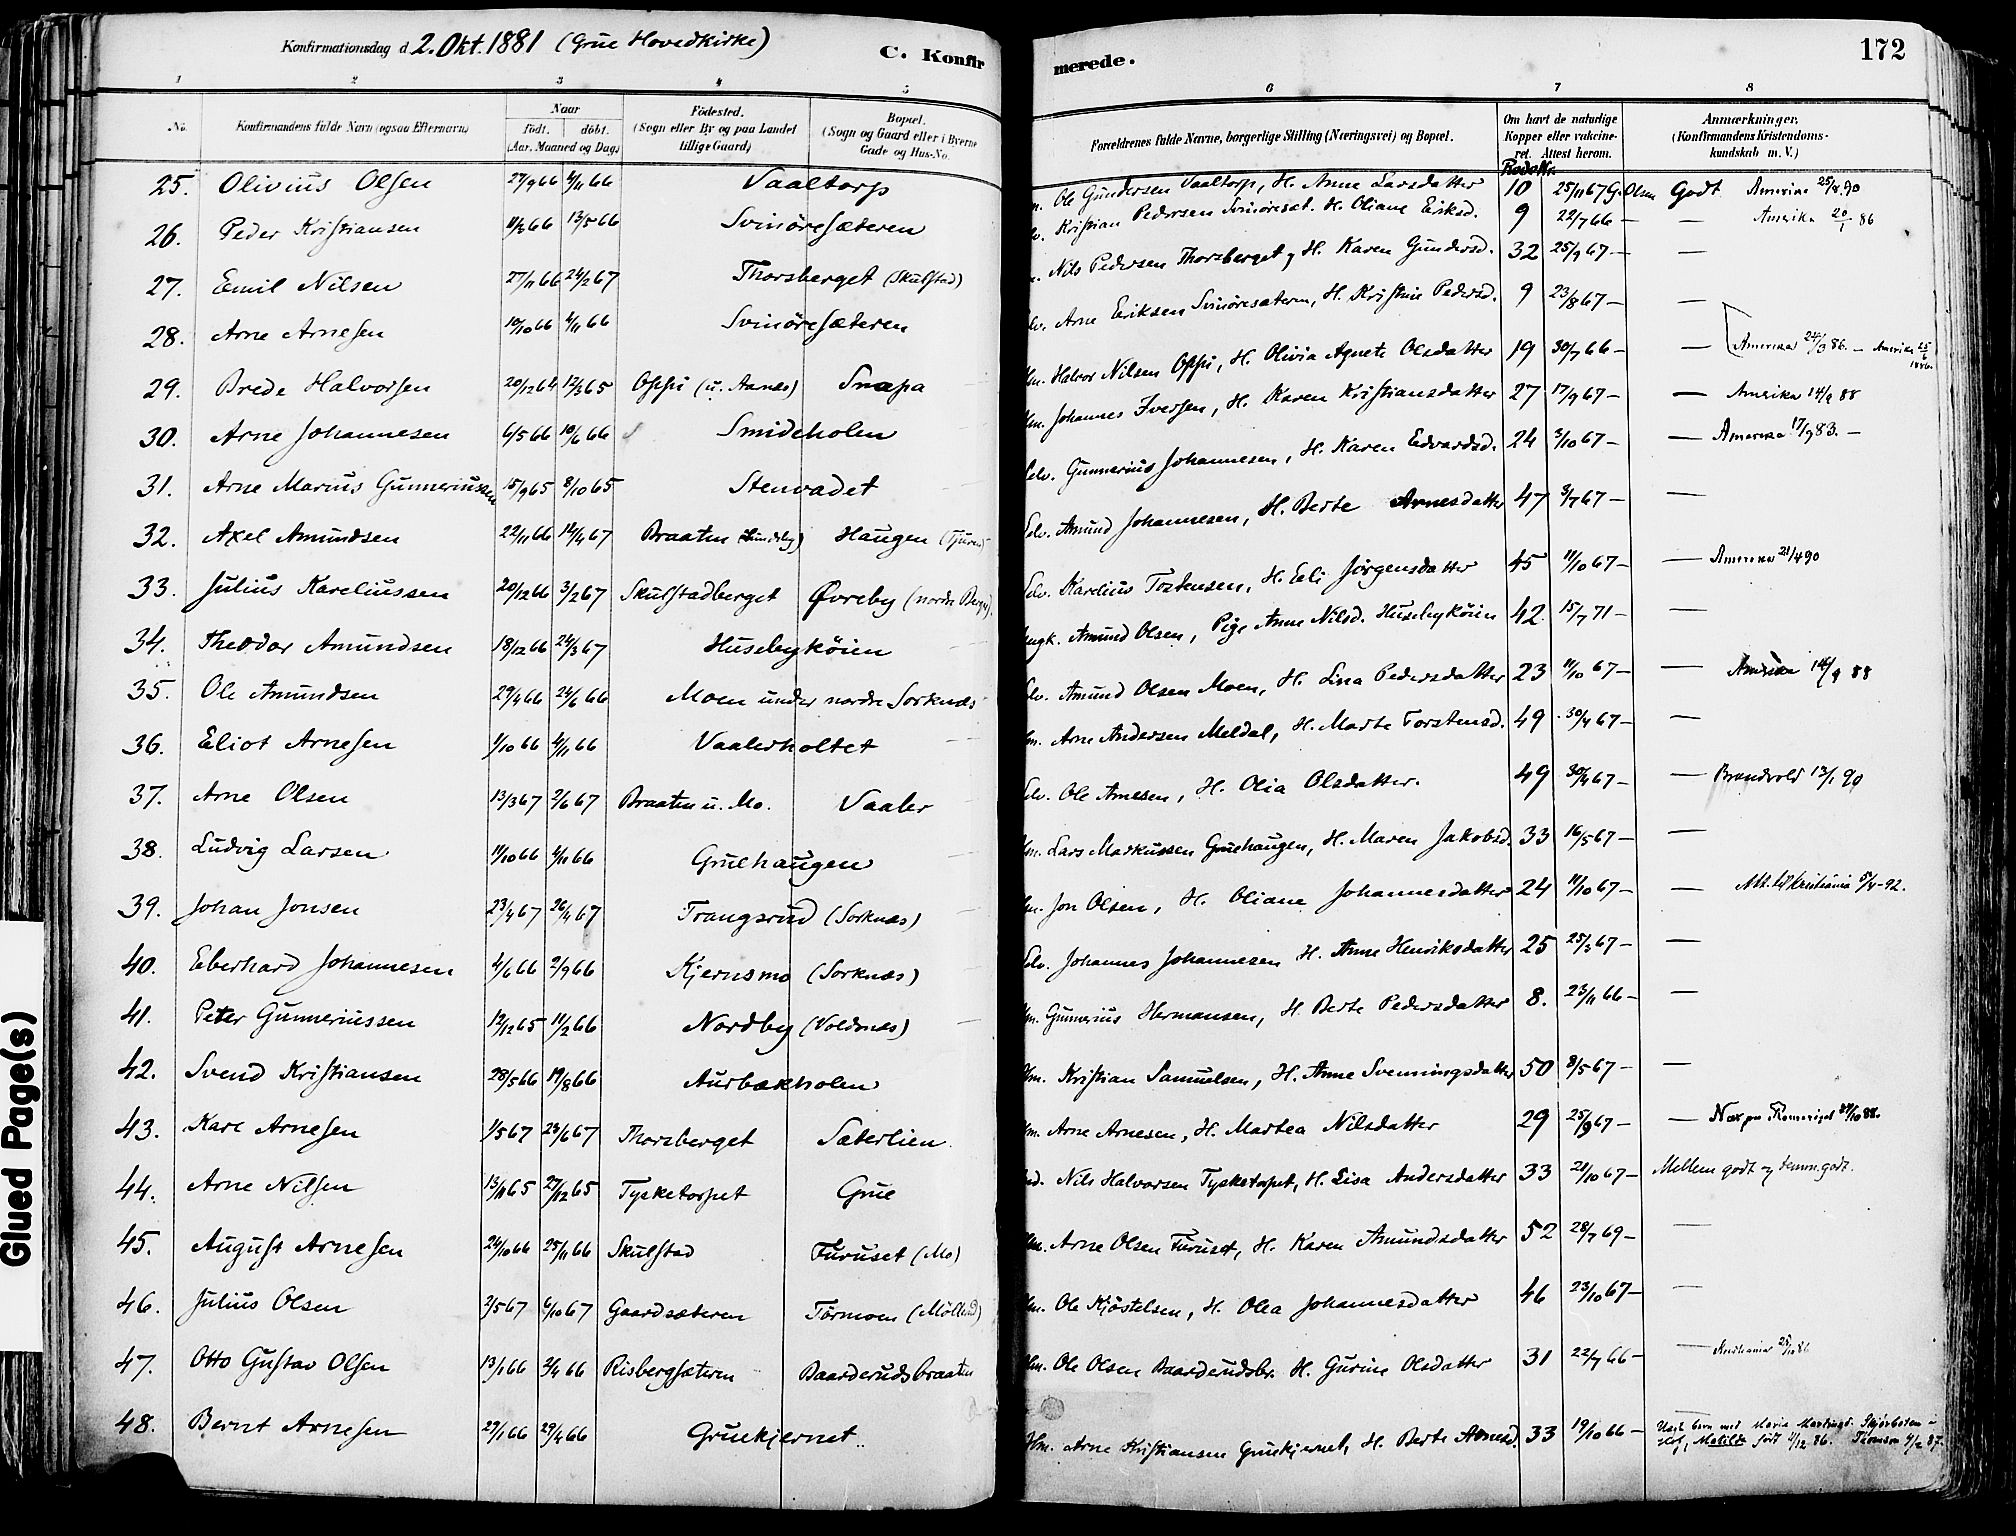 Konfirmationsdag d 2. Okt. 1881 (Grue Hovedkirke) C. Konfir
merede. 172
1 2 3 4 5
6 7 8
No. Konfirmandens fulde Navn (ogsaa Efternavn) Naar Födt. döbt. (Aar. Maaned og Dag) Födested. (Sogn eller By og paa Landet tillige Gaard) Bopæl. (Sogn og Gaard eller i Byerne Gade og Hus-No.
Forældrenes fulde Navne, borgerlige Stilling (Næringsvei) og Bopæl. Om havt de naturlige Kopper eller vakcineret. Attest herom. Anmærkninger. (Konfirmandens Kristendomskundskab m. V.)
25. Olivius Olsen 27/9 66 4/11 66 Vaaltorp
Ole Gundersen Vaaltorp, H. Anne Larsdatter 10 25/11 67 G. Olsen Godt Amerika 25/8 90
26. Peder Kristiansen 11/3 66 13/5 66 Svinöresæteren
Kristian Pedersen Svinöresæt. H. Oliane Eriksd. 9 22/7 66 — — Amerika 20/1 86
27. Emil Nilsen 27/11 66 24/2 67 Thorsberget (Skulstad)
Nils Pedersen Thorsberget, H. Karen Gundersd. 32 25/9 67 — —
28. Arne Arnesen 10/10 66 4/11 66 Svinöresæteren
Arne Eriksen Svinöresæteren, H. Kristine Pedersd. 9 23/8 67 — —
29. Brede Halvorsen 20/12 64 12/3 65 Oppi (u. Aanæs) Snapa
Halvor Nilsen Oppi, H. Olivia Agnete Olsdatter 19 30/7 66 — — Amerika 26/3 86. — Amerika 25/6 1886
30. Arne Johannesen 6/5 66 10/6 66 Smideholen
Johannes Iversen, H. Karen Kristiansdatter 27 17/9 67 — — Amerika 14/9 88
31. Arne Marius Gunneriussen 15/9 65 8/10 65 Stenvadet
Gunnerius Johannesen, H. Karen Edvardsd. 24 3/10 67 — — Amerika 17/9 83. —
32. Axel Amundsen 22/11 66 14/4 67 Braaten (Lundeby) Haugen
Amund Johannesen, H. Berte Arnesdatter 47 3/7 67 — —
33. Julius Kareliussen 20/12 66 3/2 67 Skulstadberget Øvreby (nordre Berg)
Karelius Tostensen, H. Eli Jørgensdatter 45 11/10 67 — — Amerika 21/4 90
34. Theodor Amundsen 18/12 66 24/3 67 Husebykøien
Ungk. Amund Olsen, Pige Anne Nilsd. Husebykøien 42 15/7 71 — —
35. Ole Amundsen 29/4 66 24/6 66 Moen under nordre Sorknæs
Amund Olsen Moen, H. Lina Pedersdatter 23 11/10 67 — — Amerika 14/9 88
36. Eliot Arnesen 1/10 66 4/11 66 Vaalerholtet
Arne Andersen Meldal, H. Marte Torstensd. 49 30/4 67 — —
37. Arne Olsen 13/3 67 2/6 67 Braaten u. Mo. Vaaler
Ole Arnesen, H. Olia Olsdatter. 49 30/4 67 — — Brandvold 13/1 90
38. Ludvig Larsen 11/10 66 4/11 66 Gruehaugen
Lars Markussen Gruehaugen, H. Maren Jakobsd. 33 16/5 67 — —
39. Johan Jonsen 23/4 67 26/4 67 Trangsrud (Sorknæs)
Jon Olsen, H. Oliane Johannesdatter 24 11/10 67 — — Att. til Kristiania 5/4 - 92.
40. Eberhard Johannesen 4/6 66 2/9 66 Kjernsmo (Sorknæs)
Johannes Johannesen H. Anne Henriksdatter 25 25/3 67 — —
41. Peter Gunneriussen 12/12 65 11/2 66 Nordby (Voldnæs)
Gunnerius Hermansen, H. Berte Pedersdatter 8. 23/11 66 — —
42. Svend Kristiansen 28/5 66 19/8 66 Aurbækholen
Kristian Samuelsen, H. Anne Svenningsdatter 50 8/5 67 — —
43. Karl Arnesen 1/5 67 23/6 67 Thorsberget Sæterlien
Arne Arnesen, H. Martea Nilsdatter 29 25/9 67 — — Næs paa Romeriget /10 88.
44. Arne Nilsen 13/11 65 27/12 65 Tysketorpet Grue
Nils Halvorsen Tysketorpet, H. Lisa Andersdatter 33 21/10 67 — Mellem godt og temm. godt.
45. August Arnesen 24/10 66 25/11 66 Skulstad Furuset (Mo)
Arne Olsen Furuset, H. Karen Amundsdatter 52 28/7 69 — —
46. Julius Olsen 3/5 67 6/10 67 Gaardsæteren Tørmoen
Ole Kjöstelsen, H. Olea Johannesdatter 46 23/10 67 — —
47. Otto Gustav Olsen 13/1 66 2/4 66 Risbergsæteren Baarderudsbraaten
Ole Olsen Baarderudsbr. H. Gurine Olsdatter 31 22/7 66 — — 25/10 86
48. Bernt Arnesen 27/1 66 29/4 66 Gruekjernet
Hm. Arne Kristiansen Gruekjernet, H. Berte Arnesd. 33 19/10 66 — Uægt barn med Maria Martinsd. i Hof, Matilde født 1/12 86.
Glued Page(s)